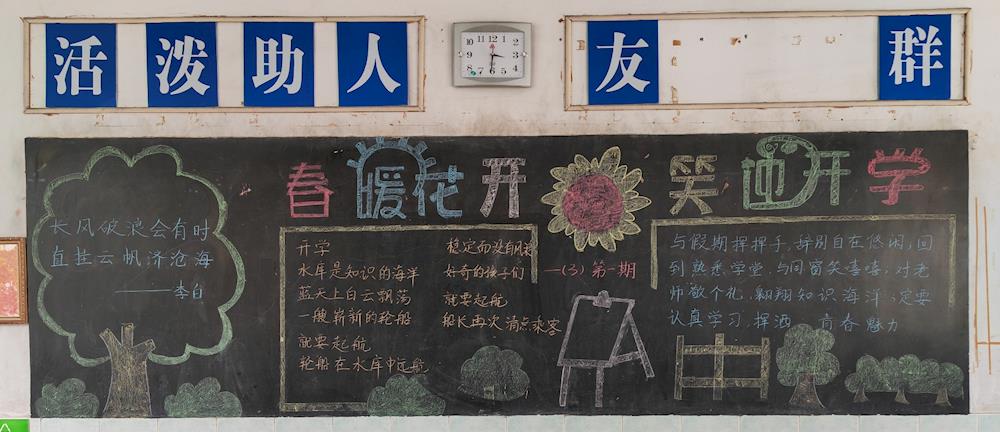 活泼助人
友
群
春暖花开
笑迎开学
长风破浪会有时
直挂云帆济沧海
——李白
开学
水库是知识的海洋
蓝天上白云飘荡
一艘崭新的轮船
就要起航
轮船在水库中远航
稳定而没有风浪
好奇的孩子们
就要起航
船长再次清点乘客
一(3) 第一期
与假期挥挥手,辞别自在悠闲,回
到熟悉学堂,与同窗笑嘻嘻,对老
师敬个礼,翱翔知识海洋,定要
认真学习,挥洒 青春魅力
12 1 2 3 4 5 6 7 8 9 10 11